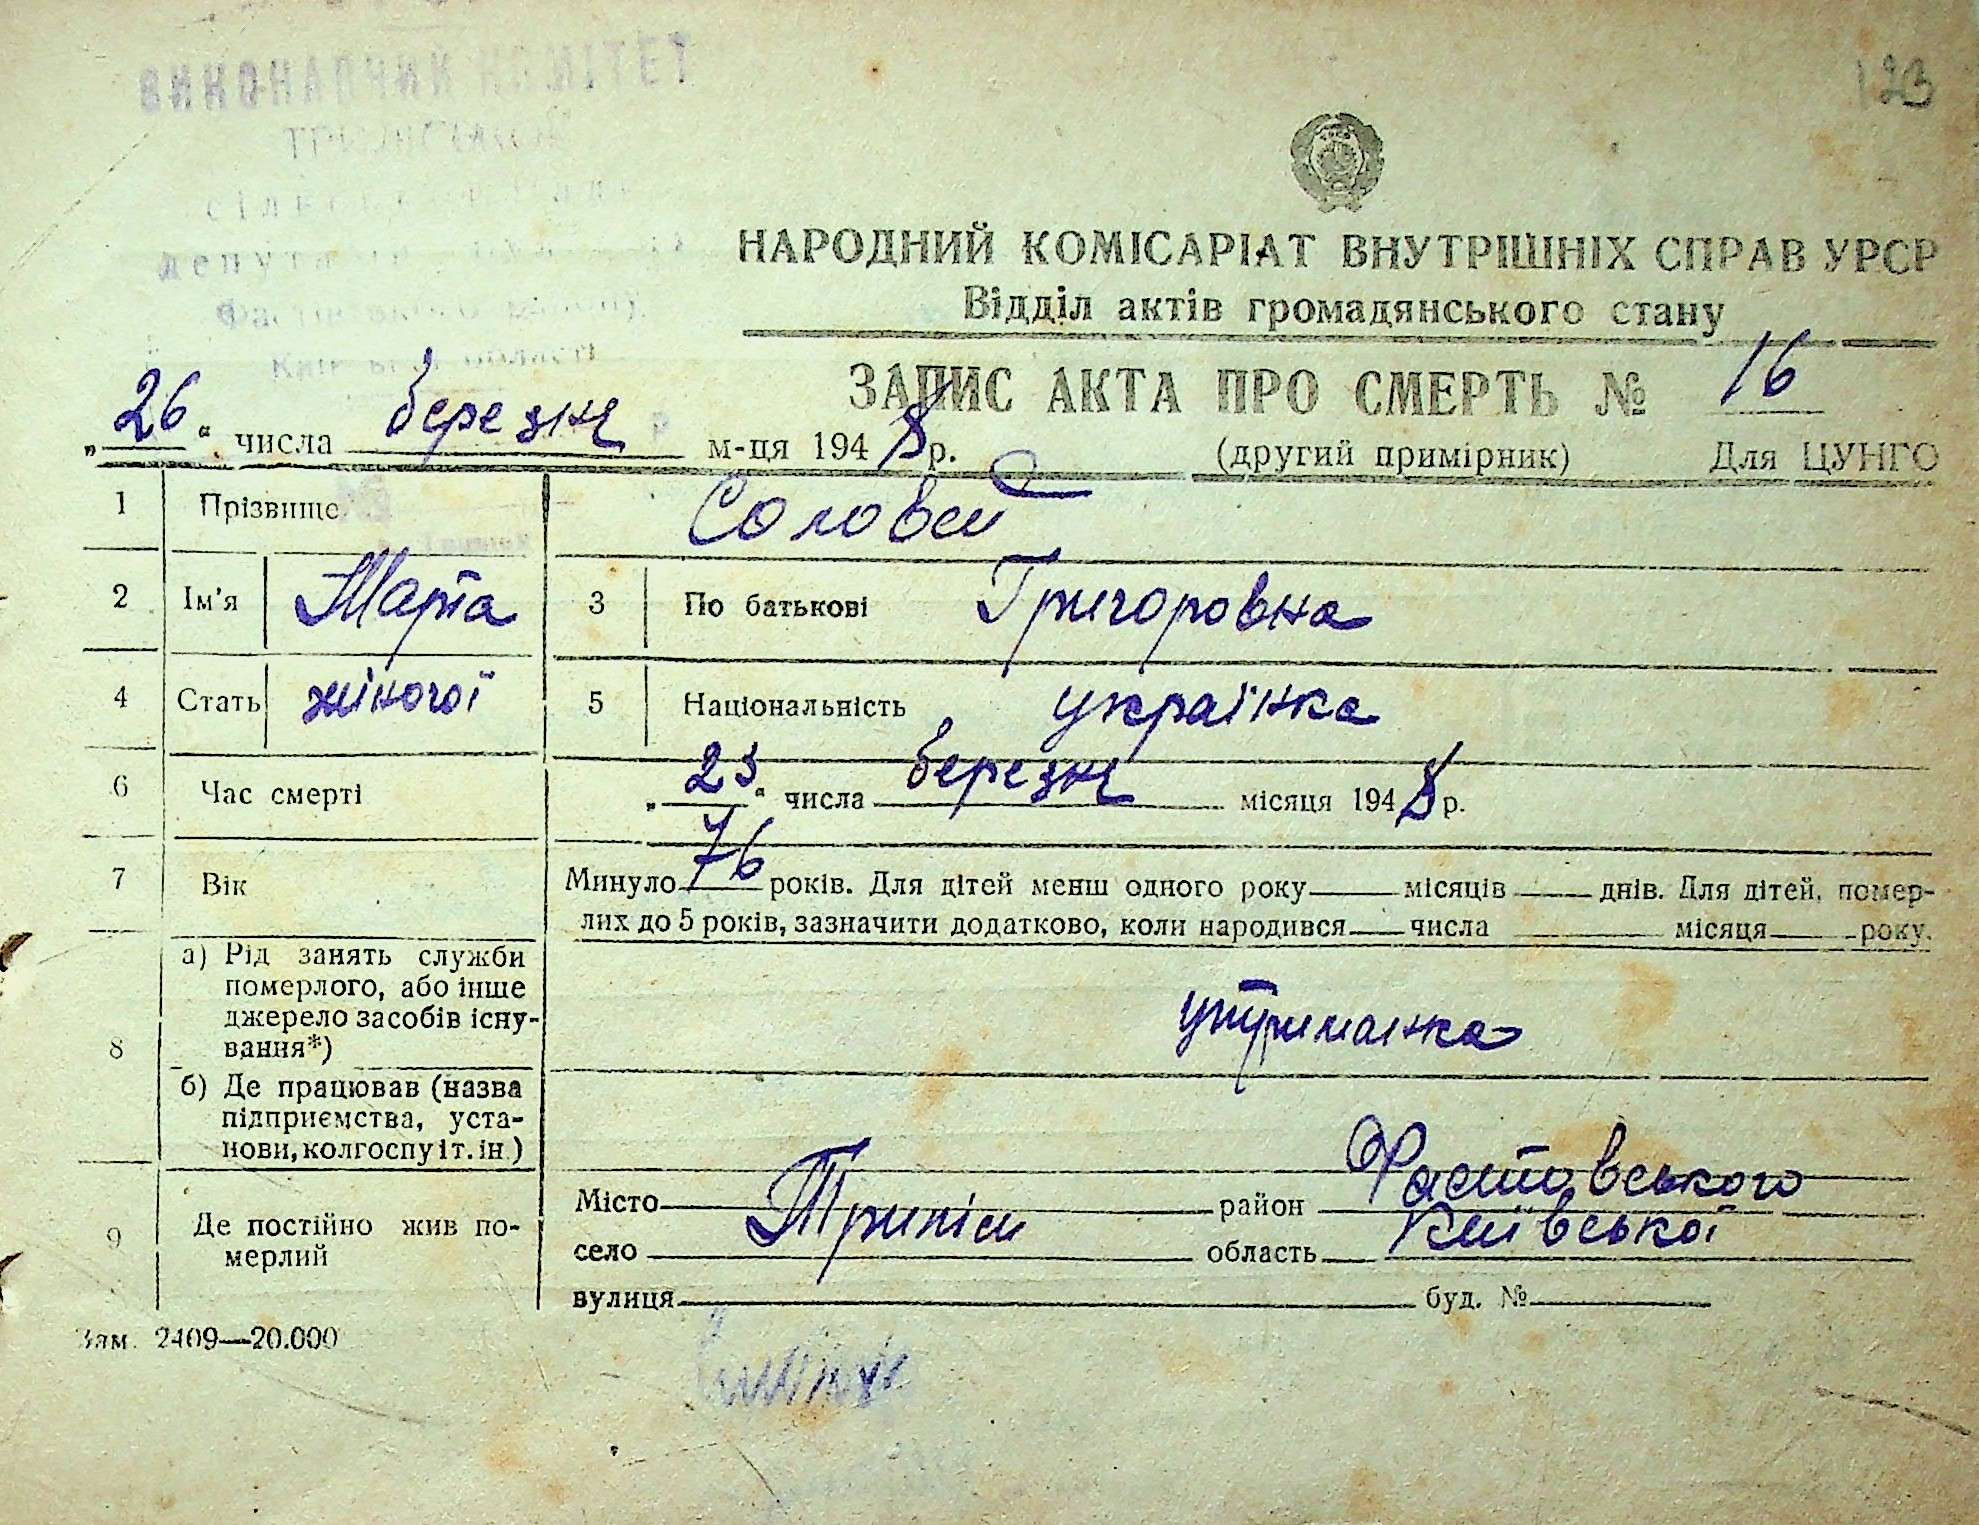 ВИКОНАВЧИЙ КОМІТЕТ
123
НАРОДНИЙ КОМІСАРІАТ ВНУТРІШНІХ СПРАВ УРСР
Відділ актів громадянського стану
ЗАПИС АКТА ПРО СМЕРТЬ № 16
„26“ числа березня м-ця 1948 р. (другий примірник) Для ЦУНГО
1 Прізвище Соловей
2 Ім'я Марта 3 По батькові Григоровна
4 Стать жіночої 5 Національність українка
6 Час смерті „23“ числа березня місяця 1948 р.
7 Вік Минуло 76 років. Для дітей менш одного року місяців днів. Для дітей, помер-
лих до 5 років, зазначити додатково, коли народився числа місяця року.
8 а) Рід занять служби
померлого, або інше
джерело засобів існу-
вання*) утриманка
б) Де працював (назва
підприємства, уста-
нови, колгоспу і т. ін.)
9 Де постійно жив по-
мерлий
Місто район Фастовського
село Трипіси область Київської
вулиця буд. №
Зам. 2409—20.000